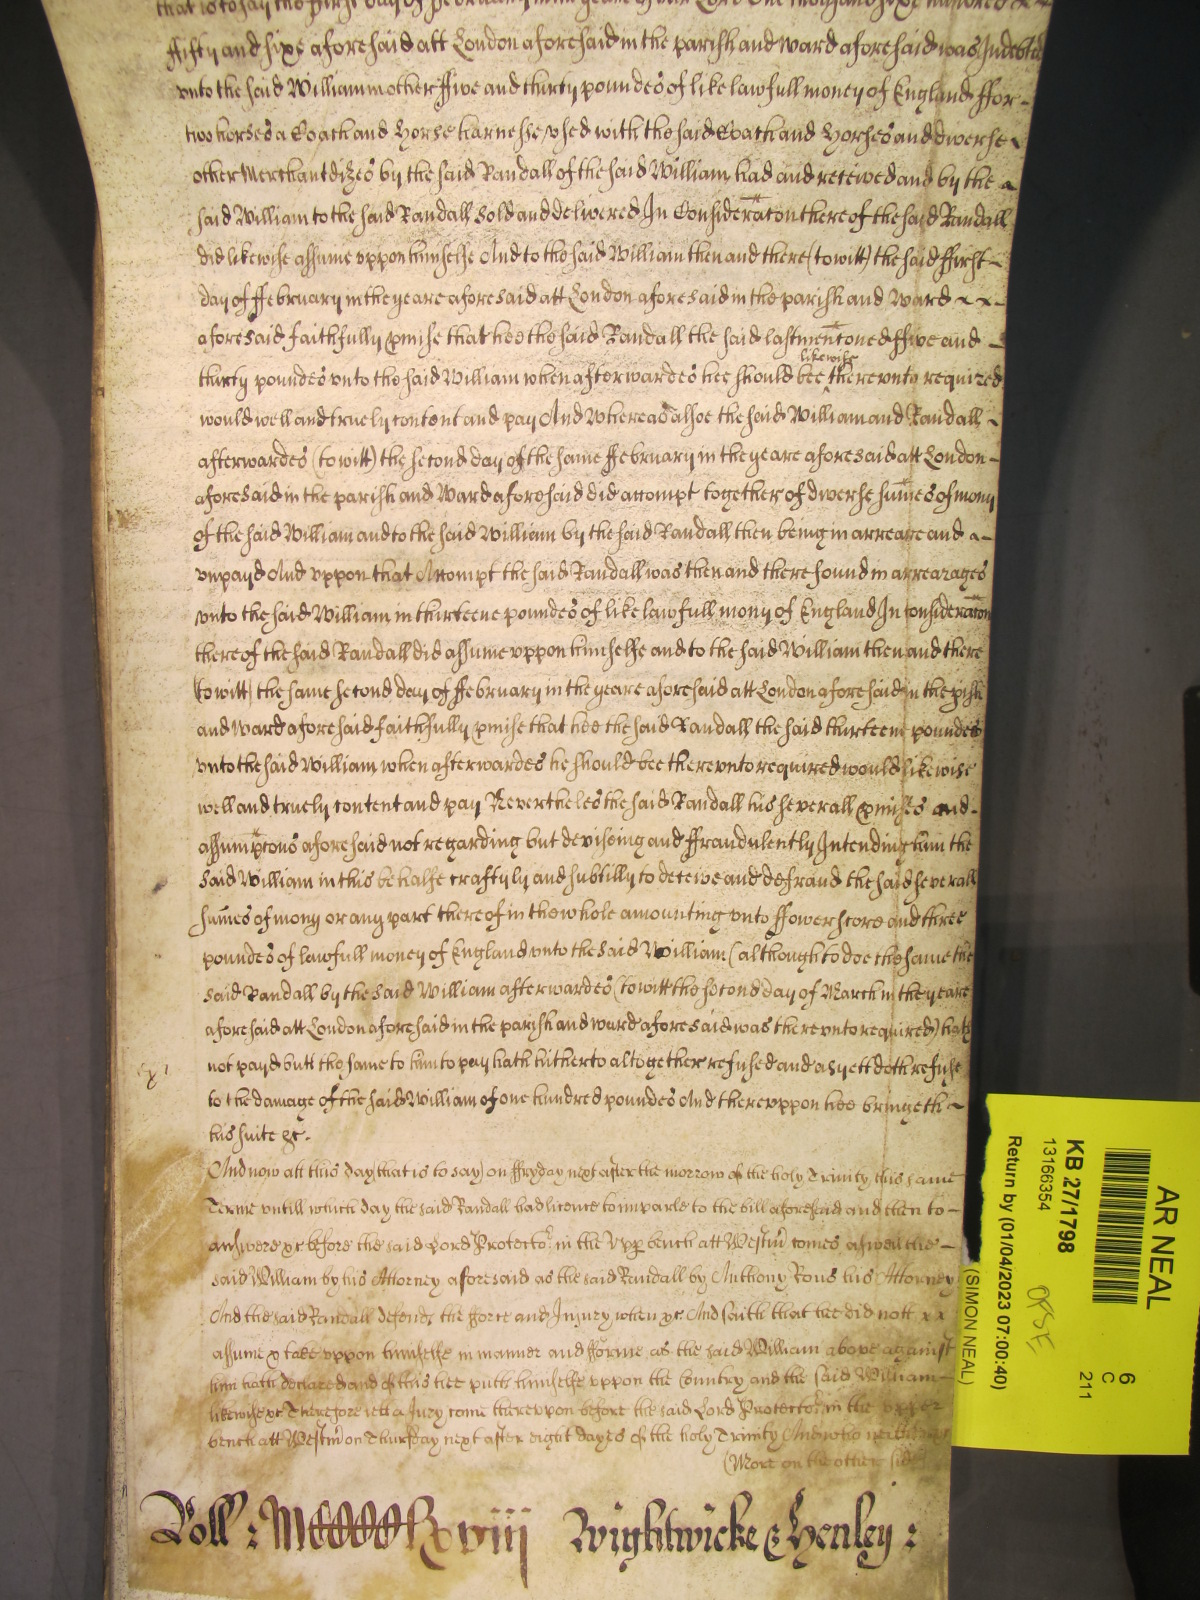 that is to say the first day of february in the yeare of our Lord One thousand sixe hundred &
ffifty and sixe aforesaid att London aforesaid in the parish and ward aforesaid was Indebted
vnto the said William in other ffive and thirty poundes of like lawfull money of England ffor -
two horses a Coach and Horse harnesse vsed with the said Coach and Horses and diverse ~
other Merchantdizes by the said Randall of the said William had and received and by the ~
said William to the said Randall sold and delivered In Consideracon thereof the said Randall
did likewise assume vppon himselfe And to the said William then and there (to witt) the said ffirst -
day of ffebruary in the yeare aforesaid att London aforesaid in the parish and Ward ~ ~ -
aforesaid faithfully pmise that hee the said Randall the said last mentoned ffive and -
likewise
thirty poundes vnto the said William when afterwardes hee should bee ^ therevnto required
would well and truely content and pay And Whereas alsoe the said William and Randall -
afterwardes (to witt) the second day of the same ffebruary in the yeare aforesaid att London -
aforesaid in the parish and Ward aforesaid did accompt together of diverse sumes of mony
of the said William and to the said William by the said Randall then being in arreare and ~ -
vnpayd And vppon that Accompt the said Randall was then and there found in arrearages
vnto the said William in thirteene poundes of like lawfull mony of England In consideracon
thereof the said Randall did assume vppon himselfe and to the said William then and there
(to witt) the same second day of ffebruary in the yeare aforesaid att London aforesaid in the pish
and ward aforesaid faithfully pmise that hee the said Randall the said thirteene poundes
vnto the said William when afterwardes he should bee therevnto required would likewise
well and truely content and pay Neverthelesthe said Randall his severall pmises and -
assumptons aforesaid not regarding but deviseing and ffraudulently Intending him the
said William in this behalfe craftyly and subtilly to deceive and defraud the said severall
sumes of mony or any part thereof in the whole amounting vnto ffowerscore and three
poundes of lawfull money of England vnto the said William (although to doe the same the
said Randall by the said William afterwardes (to witt the second day of March in the yeare
aforesaid att London aforesaid in the parish and ward aforesaid was therevnto required) hath
not payd butt the same to him to pay hath hitherto altogether refused and as yett doth refuse
to the damage of the said William of one hundred poundes And therevppon hee bringeth ~
his suite &c.
And now att this day that is to say) on ffryday next after the morrow of the holy Trinity this same
Terme vntill which day the said Randall had licence to imparle to the bill aforesaid and then to -
answere &c before the said Lord Protector in the vpp bench att Westm comes aswell the -
said William by his Attorney aforesaid as the said Randall by Anthony Rous his Attorney
And the said Randall defends the fforce and Injury when &c And saith that hee did nott x x
assume & take vppon himselfe in manner and fforme as the said William above against
him hath declared and of this hee putts himselfe vppon the Country and the said William -
likewise &c Therefore lett a Jury come therevpon before the said Lord Protector in the vpper
bench att Westm on Thursday next after eight dayes of the holy Trinity And who neither
(More on the other side
Roll : MCCCCClxxviij Wightwicke & Henley :
AR NEAL
6
C
211
KB 27/1798
13166354
OFSF
Return by (01/04/2023 07:00:40)
(SIMON NEAL)